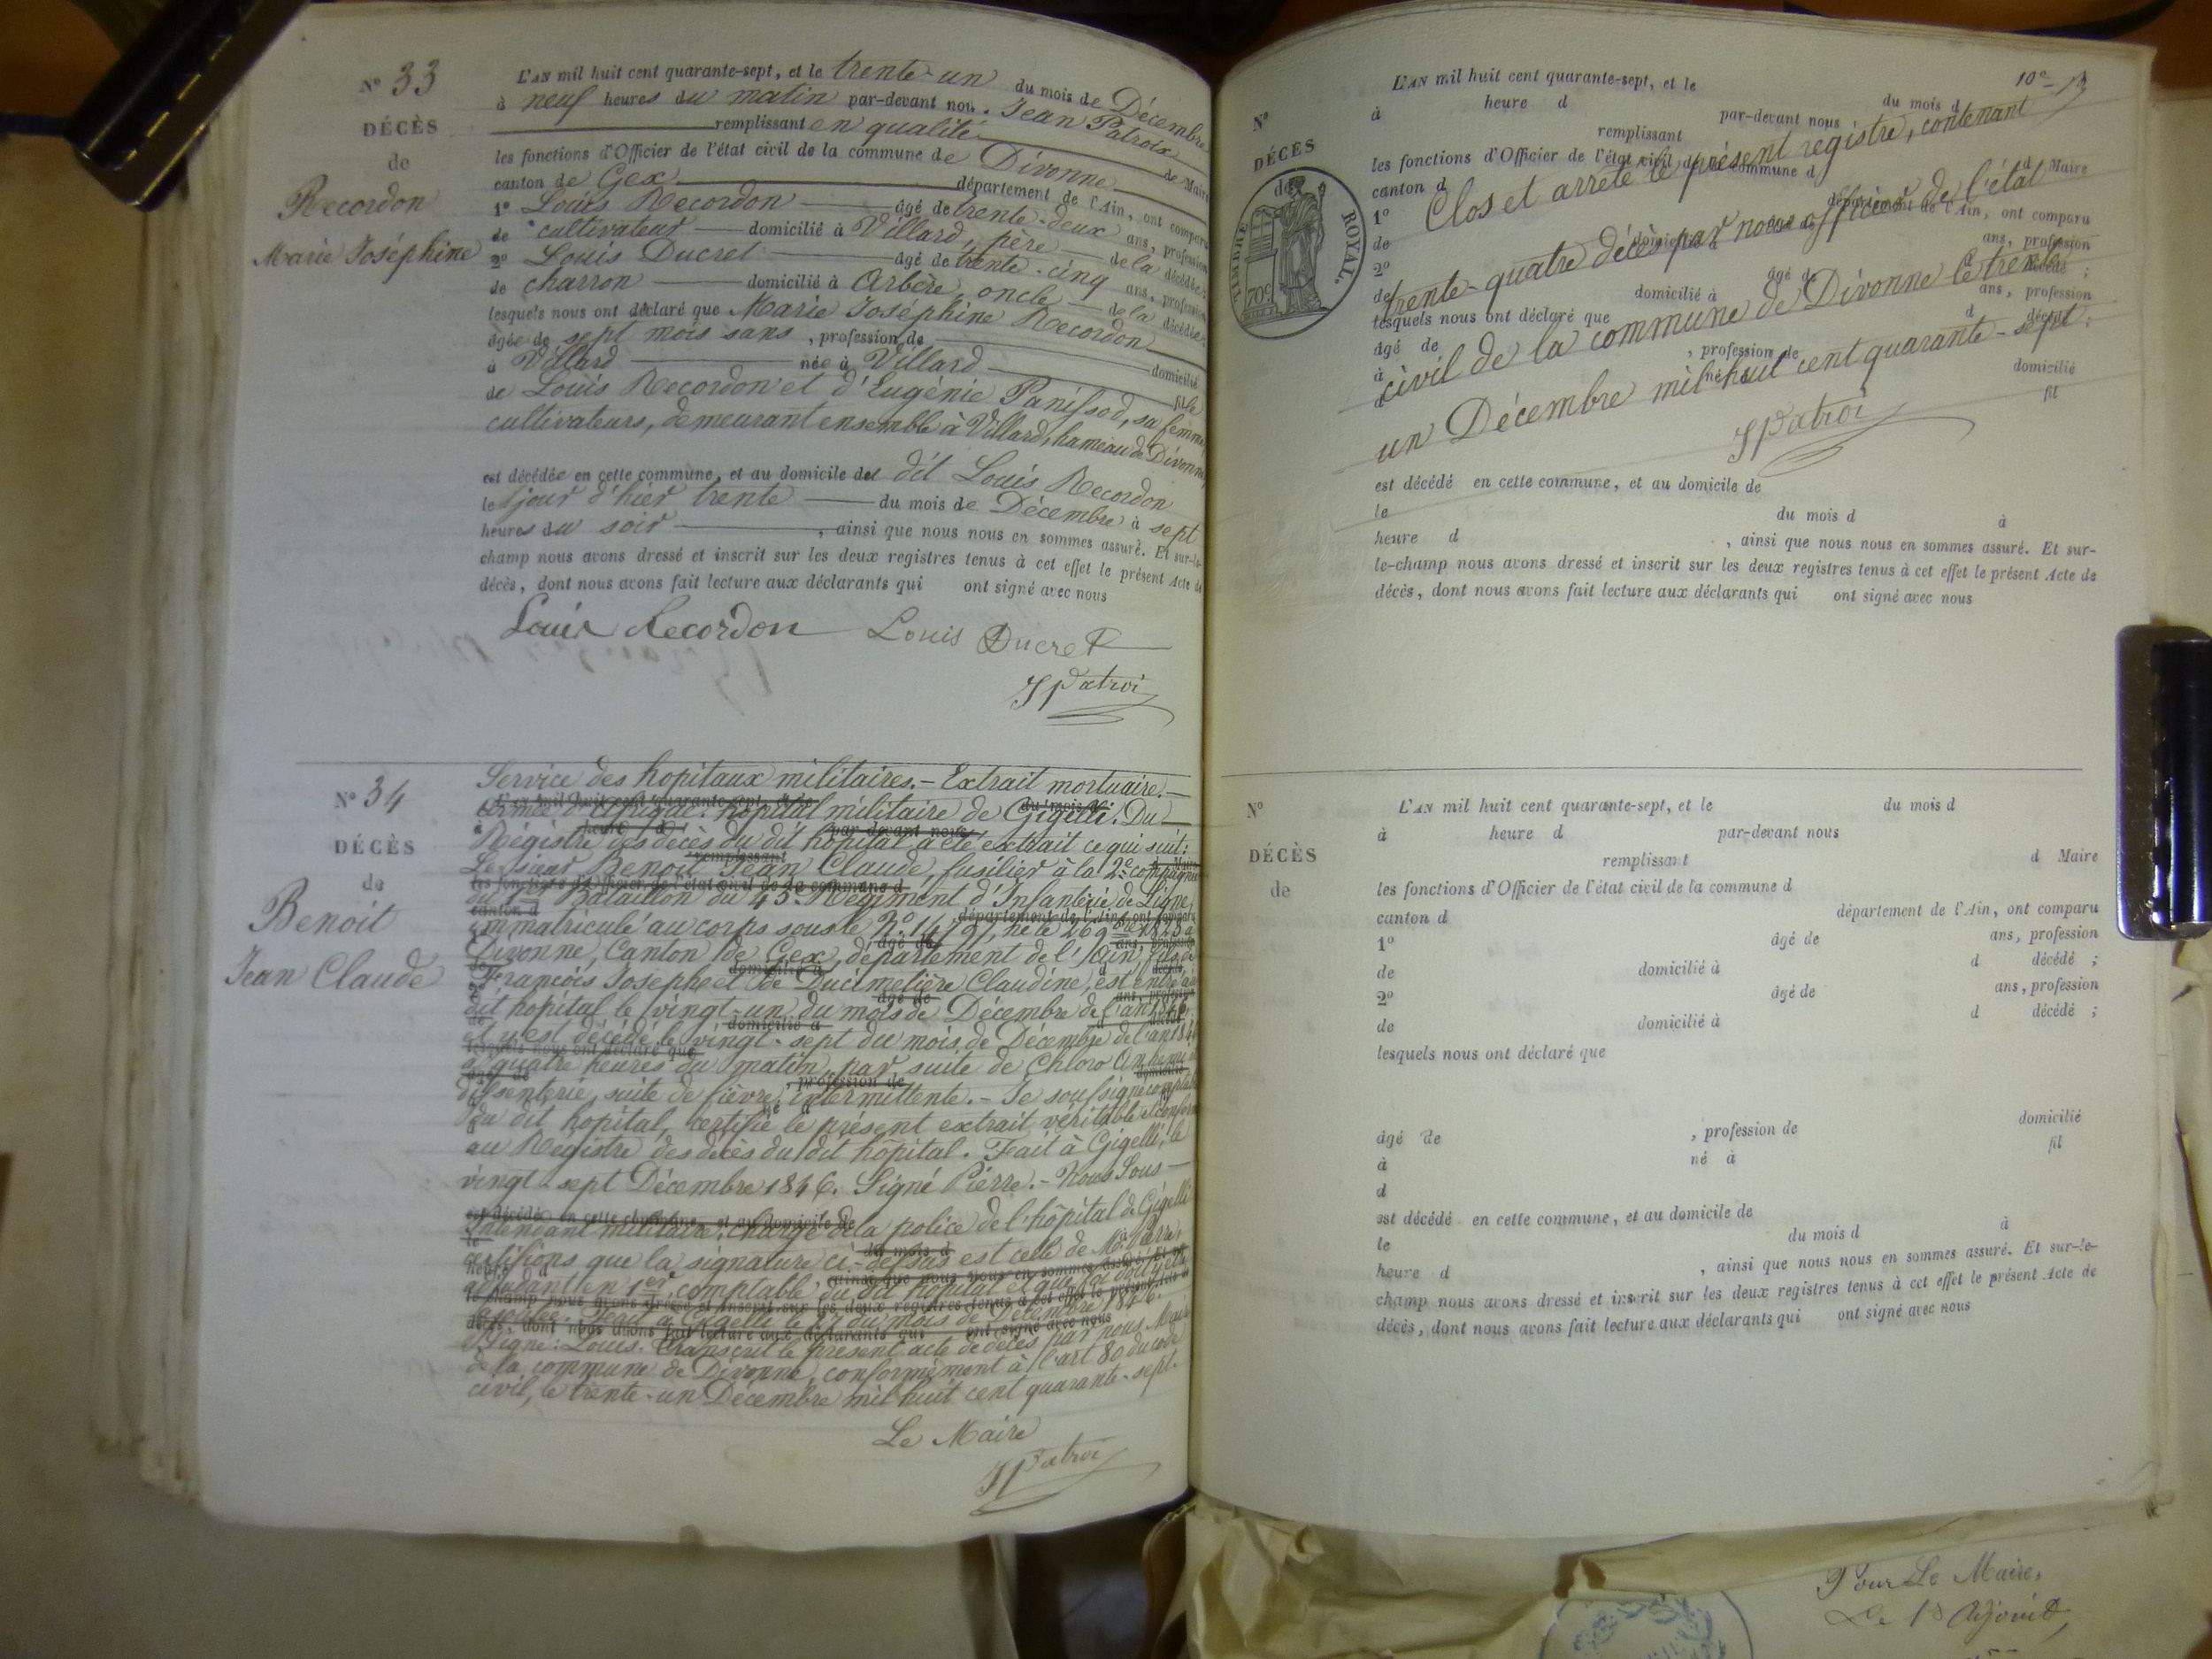 N° 33
DÉCÈS
de
Recordon
Marie Joséphine
L'AN mil huit cent quarante-sept, et le trente-un du mois de Décembre
à neuf heures du matin par-devant nou. Jean Patroix
remplissant en qualité de Maire
les fonctions d'Officier de l'état civil de la commune de Divonne
canton de Gex département de l'Ain, ont comparu
1° Louis Recordon âgé de trente-deux ans, profession
de cultivateur domicilié à Villard, père de la décédée
2° Louis Ducret âgé de trente-cinq ans, profession
de charron domicilié à Arbère, oncle de la décédée
lesquels nous ont déclaré que Marie Joséphine Recordon
âgée de sept mois sans , profession de domicilié
à Villard née à Villard fille
de Louis Recordon et d'Eugénie Panissod, sa femme,
cultivateurs, demeurant ensemble à Villard, hameau de Divonne,
est décédée en cette commune, et au domicile du dit Louis Recordon
le jour d'hier trente du mois de Décembre à sept
heures du soir , ainsi que nous nous en sommes assuré. Et sur-le-
champ nous avons dressé et inscrit sur les deux registres tenus à cet effet le présent Acte de
décès, dont nous avons fait lecture aux déclarants qui ont signé avec nous
Louis Recordon Louis Ducret
JPatroi
N° 34
DÉCÈS
de
Benoit
Jean Claude
Service des hopitaux militaires.- Extrait mortuaire.-
Armée d'Afrique. hopital militaire de Gigelli. Du
Régistre des décès du dit hopital a été extrait ce qui suit:
Le sieur Benoit Jean Claude, fusilier à la 2e compagnie
du Bataillon du 43e Régiment d'Infanterie de Ligne,
immatriculé au corps sous le N°. né le 26 9bre 1823 à
Divonne, Canton de Gex, département de l'Ain, fils de
François Joseph et de Claudine, est entré au
dit hopital le vingt-un du mois de Décembre de l'an 1846
et y est décédé le vingt-sept du mois de Décembre de l'an 1846
à quatre heures du matin, par suite de Chloro
dissenterie, suite de fièvre intermittente.- Je soussigné comptable
du dit hopital, certifie le présent extrait véritable et conforme
au Registre des décès du dit hôpital. Fait à Gigelli, le
vingt-sept Décembre 1846. Signé Pierre.- Nous Sous-
Intendant militaire, chargé de la police de l'hôpital de Gigelli
certifions que la signature ci-dessus est celle de Mr. Pierre,
adjudant en 1er, comptable du dit hopital et que foi doit y être
ajoutée. Fait à Gigelli le 27 du mois de Décembre 1846.
Signé: Louis. Transcrit le présent acte de décès par nous Maire
de la commune de Divonne, conformément à l'art 80 du code
civil, le trente-un Décembre mil huit cent quarante-sept.
Le Maire
JPatroi
N°
DÉCÈS
de
TIMBRE ROYAL.
70c
L'AN mil huit cent quarante-sept, et le du mois d
à heure d par-devant nous
remplissant d Maire
les fonctions d'Officier de l'état civil de la commune d
canton d département de l'Ain, ont comparu
1° ans, profession
de domicilié à
2° âgé de ans, profession
de domicilié à d décédé ;
lesquels nous ont déclaré que
âgé de , profession de domicilié
à né à fil
d
Clos et arrêté le présent registre, contenant
trente-quatre décès par nous officier de l'état
civil de la commune de Divonne le trente
un Décembre mil huit cent quarante-sept.
JPatroi
est décédé en cette commune, et au domicile de
le du mois d à
heure d , ainsi que nous nous en sommes assuré. Et sur-
le-champ nous avons dressé et inscrit sur les deux registres tenus à cet effet le présent Acte de
décès, dont nous avons fait lecture aux déclarants qui ont signé avec nous
N°
DÉCÈS
de
L'AN mil huit cent quarante-sept, et le du mois d
à heure d par-devant nous
remplissant d Maire
les fonctions d'Officier de l'état civil de la commune d
canton d département de l'Ain, ont comparu
1° âgé de ans, profession
de domicilié à d décédé ;
2° âgé de ans, profession
de domicilié à d décédé ;
lesquels nous ont déclaré que
âgé de , profession de domicilié
à né à fil
d
est décédé en cette commune, et au domicile de
le du mois d à
heure d , ainsi que nous nous en sommes assuré. Et sur-le-
champ nous avons dressé et inscrit sur les deux registres tenus à cet effet le présent Acte de
décès, dont nous avons fait lecture aux déclarants qui ont signé avec nous
Pour Le Maire,
Le 1er Adjoint,